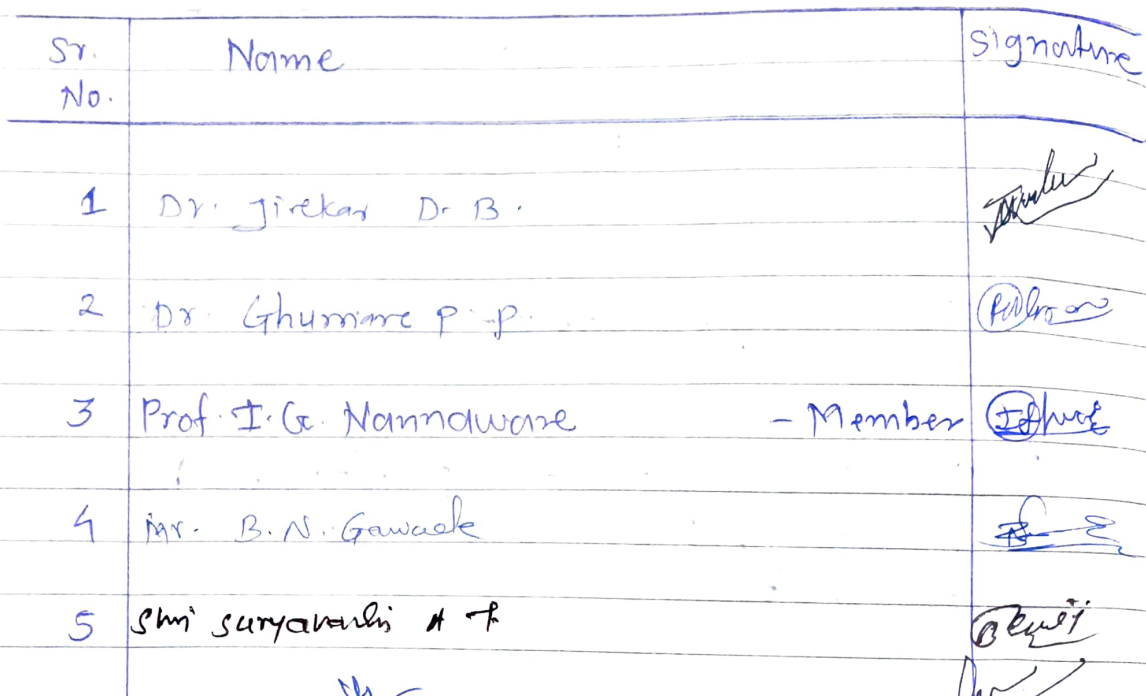 Sr. No. Name Signature
1 Dr. Jirekar D. B.
2 Dr. Ghumare P. P.
3 Prof. I. G. Nannaware - Member
4 Mr. B. N. Gawade
5 Shri Suryavanshi A